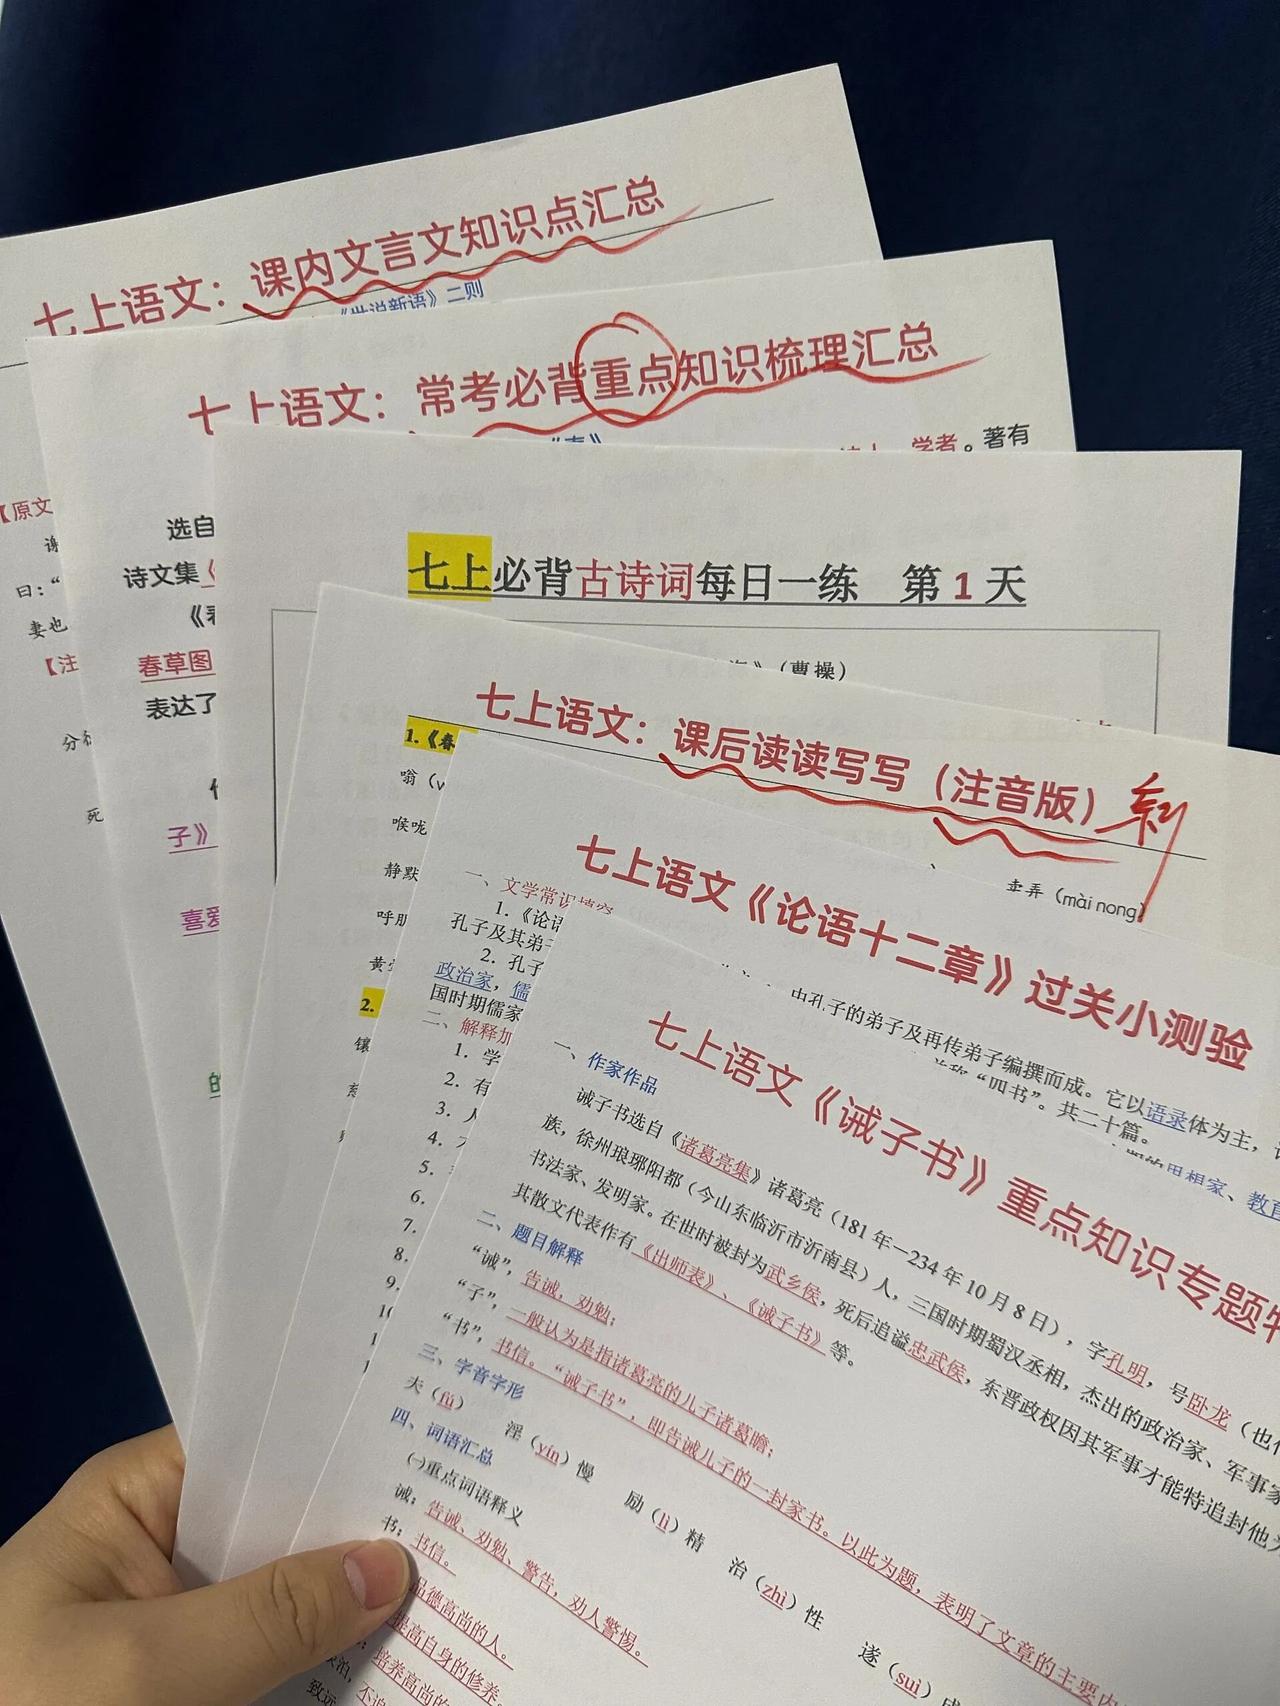 七上语文：课内文言文知识点汇总
《世说新语》二则
【原文
曰：“
妻也
【注
死
七上语文：常考必背重点知识梳理汇总
学者。著有
选自
诗文集《
春草图
表达了
子》
喜爱
的
七上必背古诗词每日一练 第1天
》（曹操）
七上语文：课后读读写写（注音版）
1.《春
卖弄（mài nong）
嗡（
喉咙
静默
呼朋
2.
七上语文《论语十二章》过关小测验
一、文学常识填空
1.《论语
由孔子的弟子及再传弟子编撰而成。它以语录体为主，
孔子及其弟子
“四书”。共二十篇。
2. 孔子
思想家、教育
政治家，儒
国时期儒家
二、解释加
1. 学
2. 有
3. 人
4.
5.
6.
7.
8.
9.
七上语文《诫子书》重点知识专题
一、作家作品
诫子书选自《诸葛亮集》诸葛亮（181年—234年10月8日），字孔明，号卧龙（也作
族，徐州琅琊阳都（今山东临沂市沂南县）人，三国时期蜀汉丞相，杰出的政治家、军事家
书法家、发明家。在世时被封为武乡侯，死后追谥忠武侯，东晋政权因其军事才能特追封他为
其散文代表作有《出师表》、《诫子书》等。
二、题目解释
“诫”，告诫，劝勉；
“子”，一般认为是指诸葛亮的儿子诸葛瞻；
“书”，书信。“诫子书”，即告诫儿子的一封家书。以此为题，表明了文章的主要内
三、字音字形
夫（fú） 淫（yín）慢 励（lì）精 治（zhì）性 遂（suì）成
四、词语汇总
㈠重点词语释义
诫：告诫、劝勉、警告，劝人警惕。
书：书信。
品德高尚的人。
提高自身的修养。
培养高尚的
致远